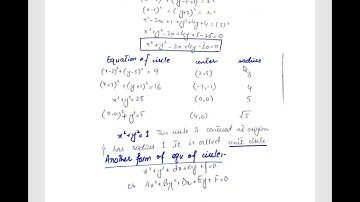 (x-1)² + (y+2)² = 2²
x²-2x+1+y²+4y+4 = (5)²
x²+y²-2x+4y+5-25=0
x²+y²-2x+4y-20=0
Equation of circle center radius
(x-2)²+(y-5)² = 9 (2,5) 3
(x+7)²+(y+1)²=16 (-7,-1) 4
x²+y²=25 (0,0) 5
(x-4)²+y²=5 (4,0) √5
x²+y²=1 This circle is centered at origin
& has radius 1 It is called unit circle.
Another form of equ of circle:-
x²+y²+dx+ey+f=0
or Ax²+By²+Dx+Ey+F=0